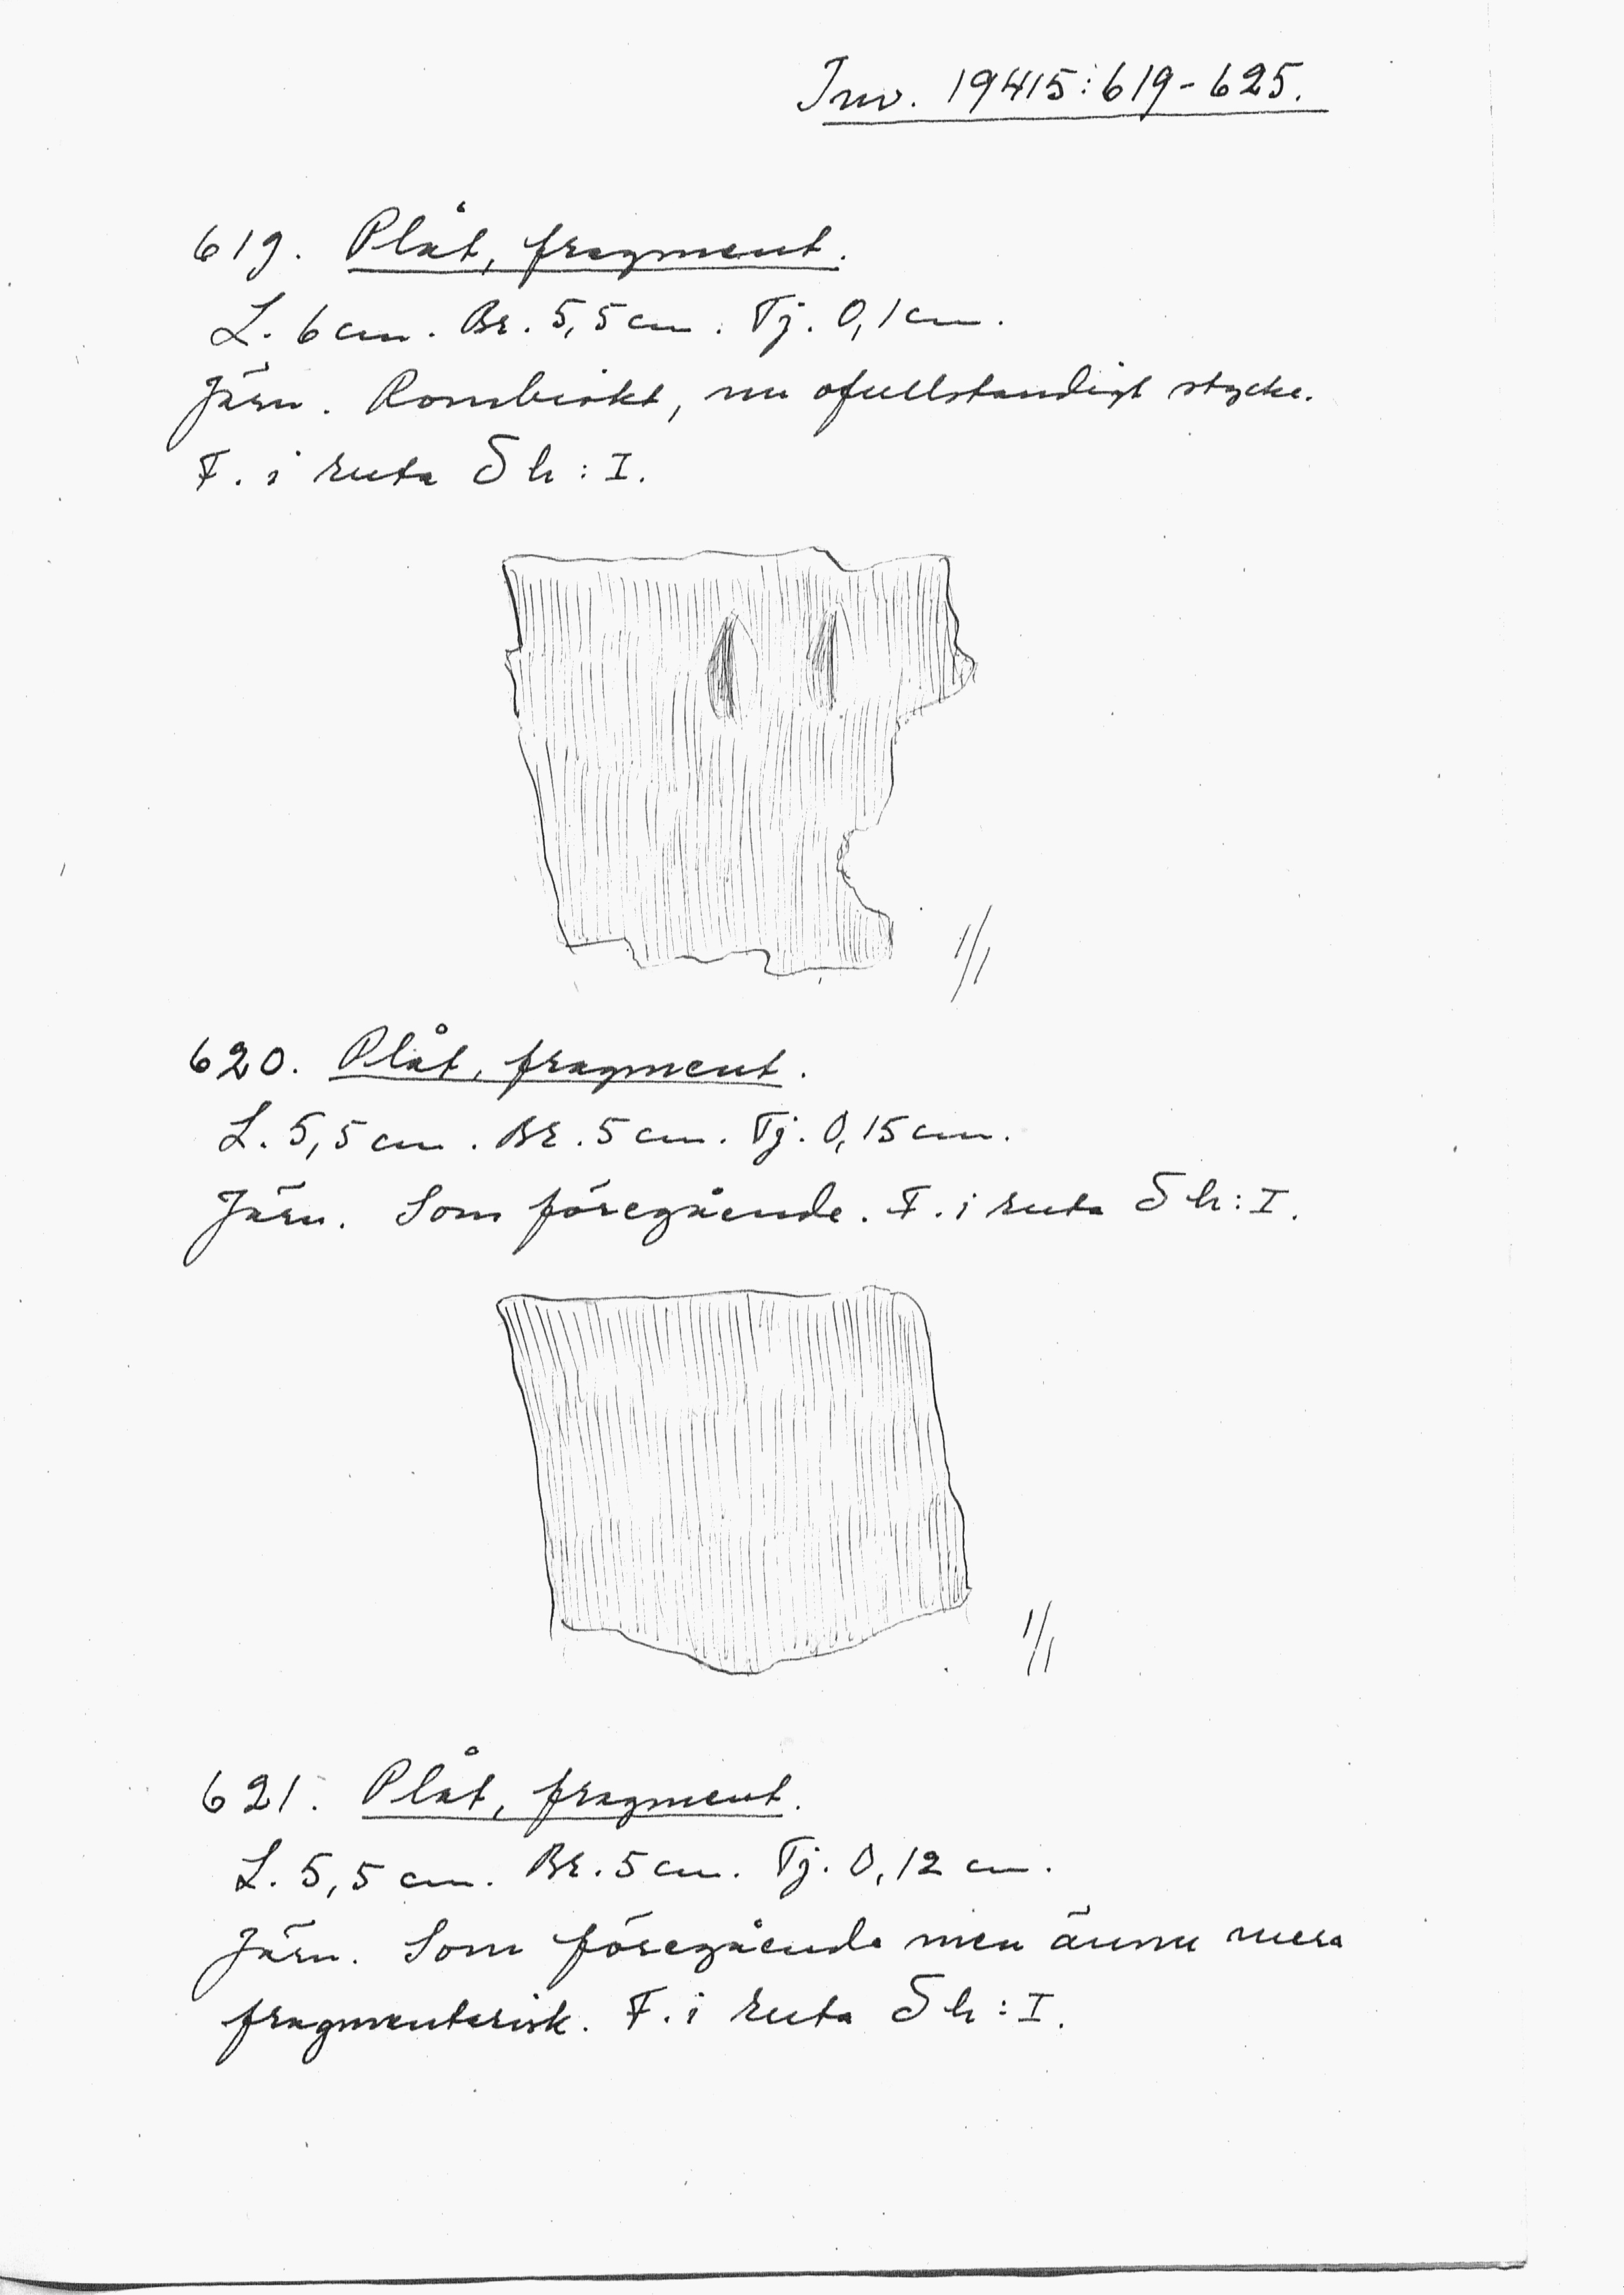 Inv. 19415:619-625.
619. Plåt, fragment.
L. 6 cm. Br. 5,5 cm. Tj. 0,1 cm.
Järn. Rombiskt, nu ofullständigt stycke.
F. i ruta S h : I.
1/1
620. Plåt, fragment.
L. 5,5 cm. Br. 5 cm. Tj. 0,15 cm.
Järn. Som föregående. F. i ruta S h : I.
1/1
621. Plåt, fragment.
L. 5,5 cm. Br. 5 cm. Tj. 0,12 cm.
Järn. Som föregående men ännu mera
fragmentarisk. F. i ruta S h : I.